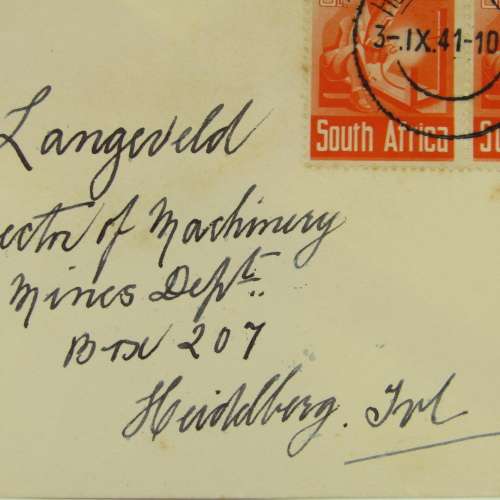 3-.IX.41-10
South Africa
Langeveld
ector of Machinery
Mines Dept.
Box 207
Heidelberg. Tvl